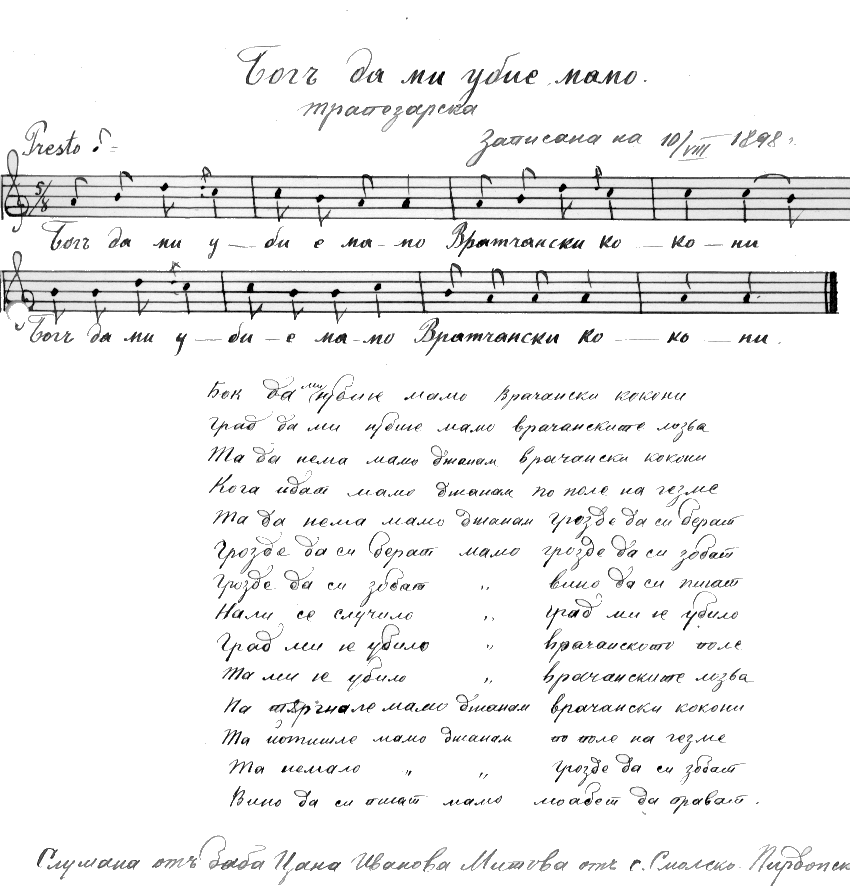 Богъ да ми убие мамо.
трапезарска
Записана на 10/VIII 1898 г.
Presto
5/8
Богъ да ми у—би е ма-мо Вратчански ко — ко — ни
Богъ да ми у—би—е ма-мо Вратчански ко — ко — ни.
Бок да ми убие мамо врачански кокони
град да ми убие мамо врачанските лозва
Та да нема мамо джанам врачански кокони
Кога идат мамо джанам по поле на гезме
Та да нема мамо джанам грозде да си берат
Грозде да си берат мамо грозде да си зобат
Грозде да си зобат „ вино да си пият
Нали се случило „ град ми е убило
Град ми е убило „ врачанското поле
Та ми е убило „ врачанските лозва
На тръгнале мамо джанам врачански кокони
Та отишле мамо джанам по поле на гезме
Та немало „ „ грозде да си зобат
Вино да си пият мамо моабет да прават.
Слушана отъ баба Цана Иванова Митова отъ с. Смолско